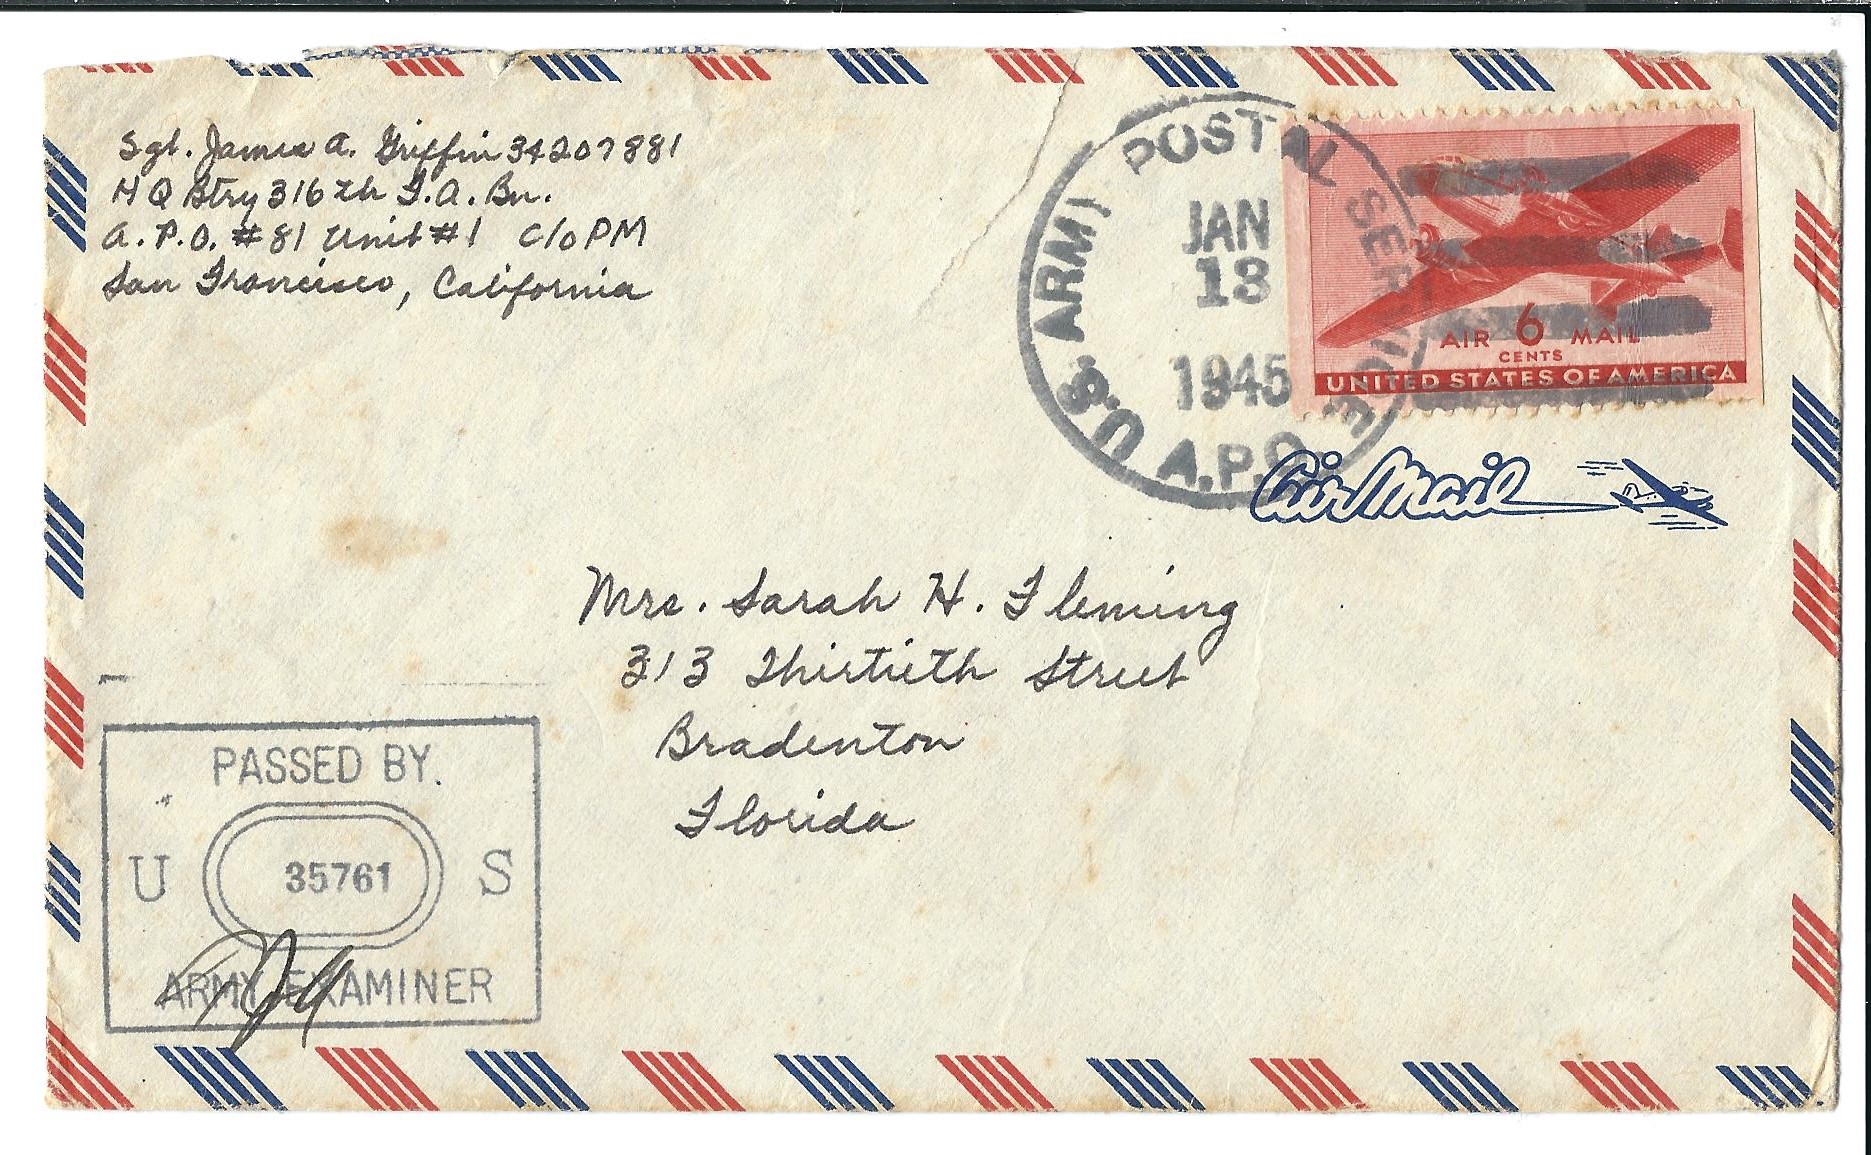 Sgt. James A. Griffin 34207881
HQ Btry 316th F.A. Bn.
A.P.O. #81 Unit #1 C/O PM
San Francisco, California
U.S. ARMY POSTAL SERVICE
JAN
13
1945
A.P.O.
AIR 6 MAIL
CENTS
UNITED STATES OF AMERICA
Air Mail
Mrs. Sarah H. Fleming
313 Thirtieth Street
Bradenton
Florida
PASSED BY
U 35761 S
ARMY EXAMINER